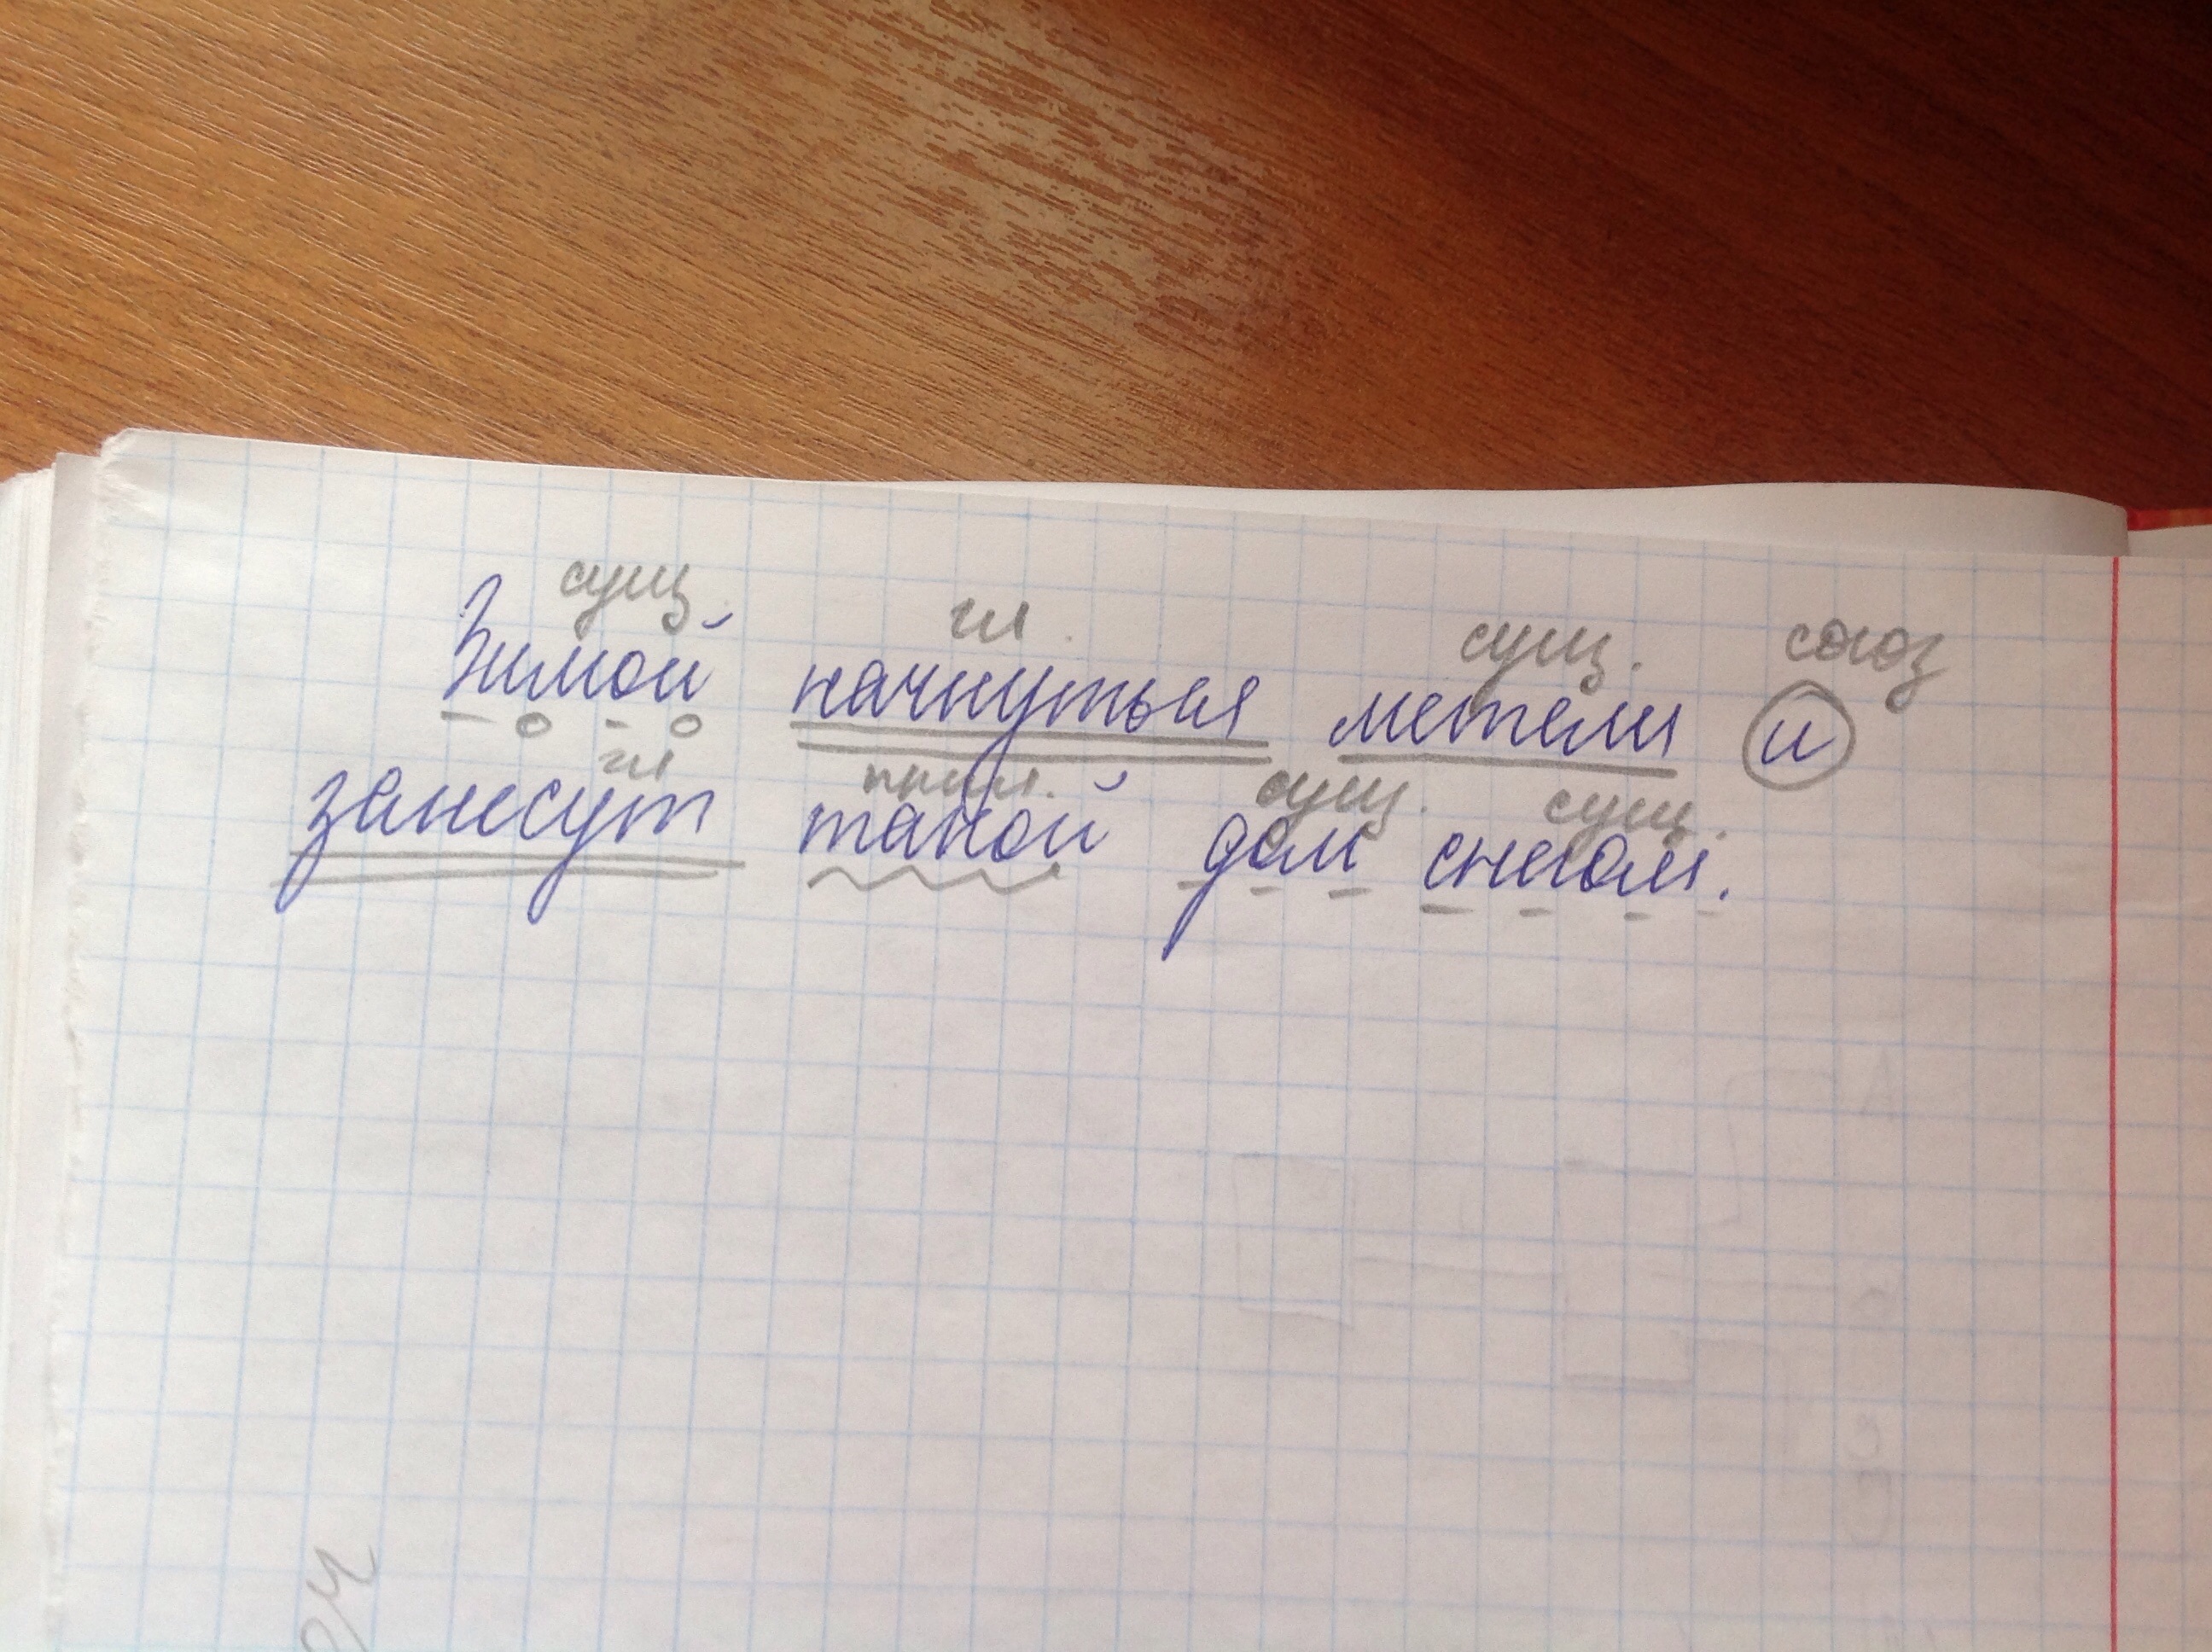 сущ. гл. сущ. союз
Зимой начнуться метели и
гл прил. сущ. сущ.
занесут такой дом снегом.